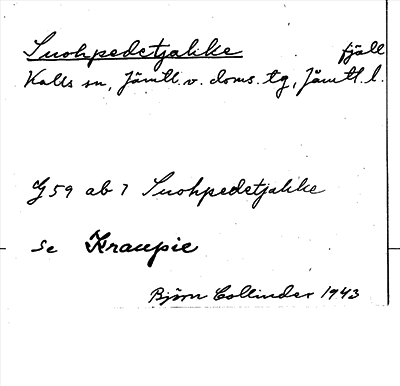 Suohpedetjalike fjäll
Kalls sn, Jämtl. v. doms. tg, Jämtl. l.
G 59 ab 7 Suohpedetjalike
Se Kraupie
Björn Collinder 1943